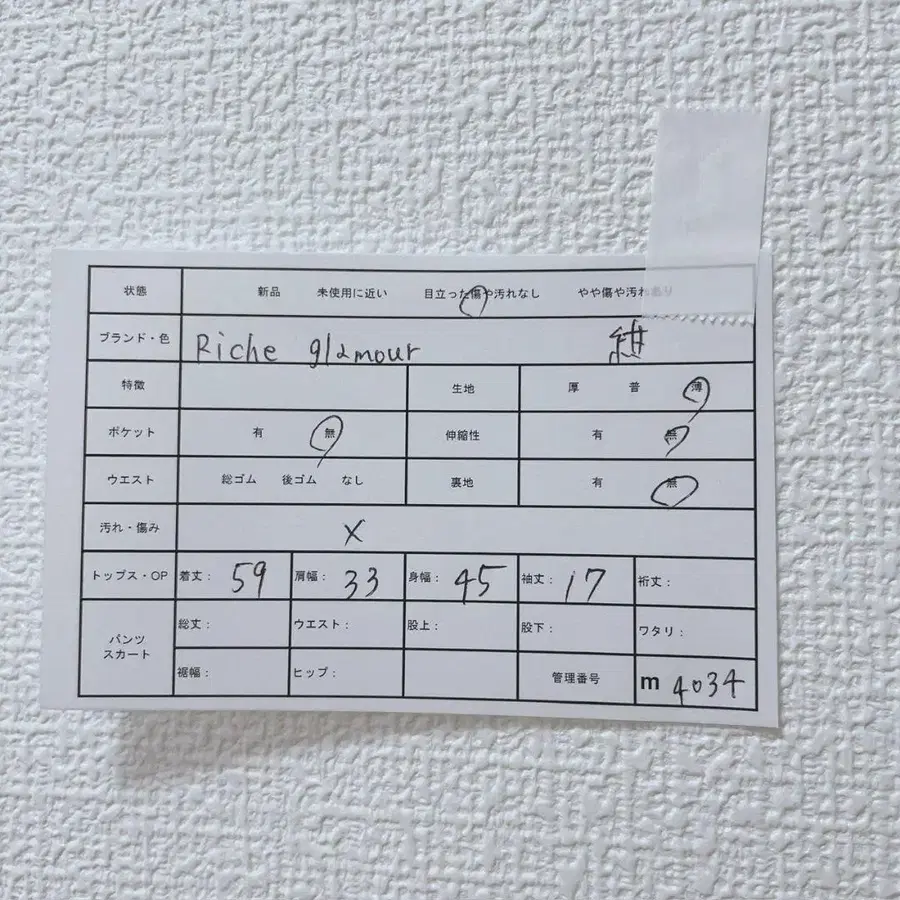 状態 新品 未使用に近い 目立った傷や汚れなし やや傷や汚れあり
ブランド・色 Riche glamour 紺
特徴 生地 厚 普 薄
ポケット 有 無 伸縮性 有 無
ウエスト 総ゴム 後ゴム なし 裏地 有 無
汚れ・傷み ×
トップス・OP 着丈： 59 肩幅： 33 身幅： 45 袖丈： 17 裄丈：
パンツ スカート 総丈： ウエスト： 股上： 股下： ワタリ：
裾幅： ヒップ： 管理番号 m 4034